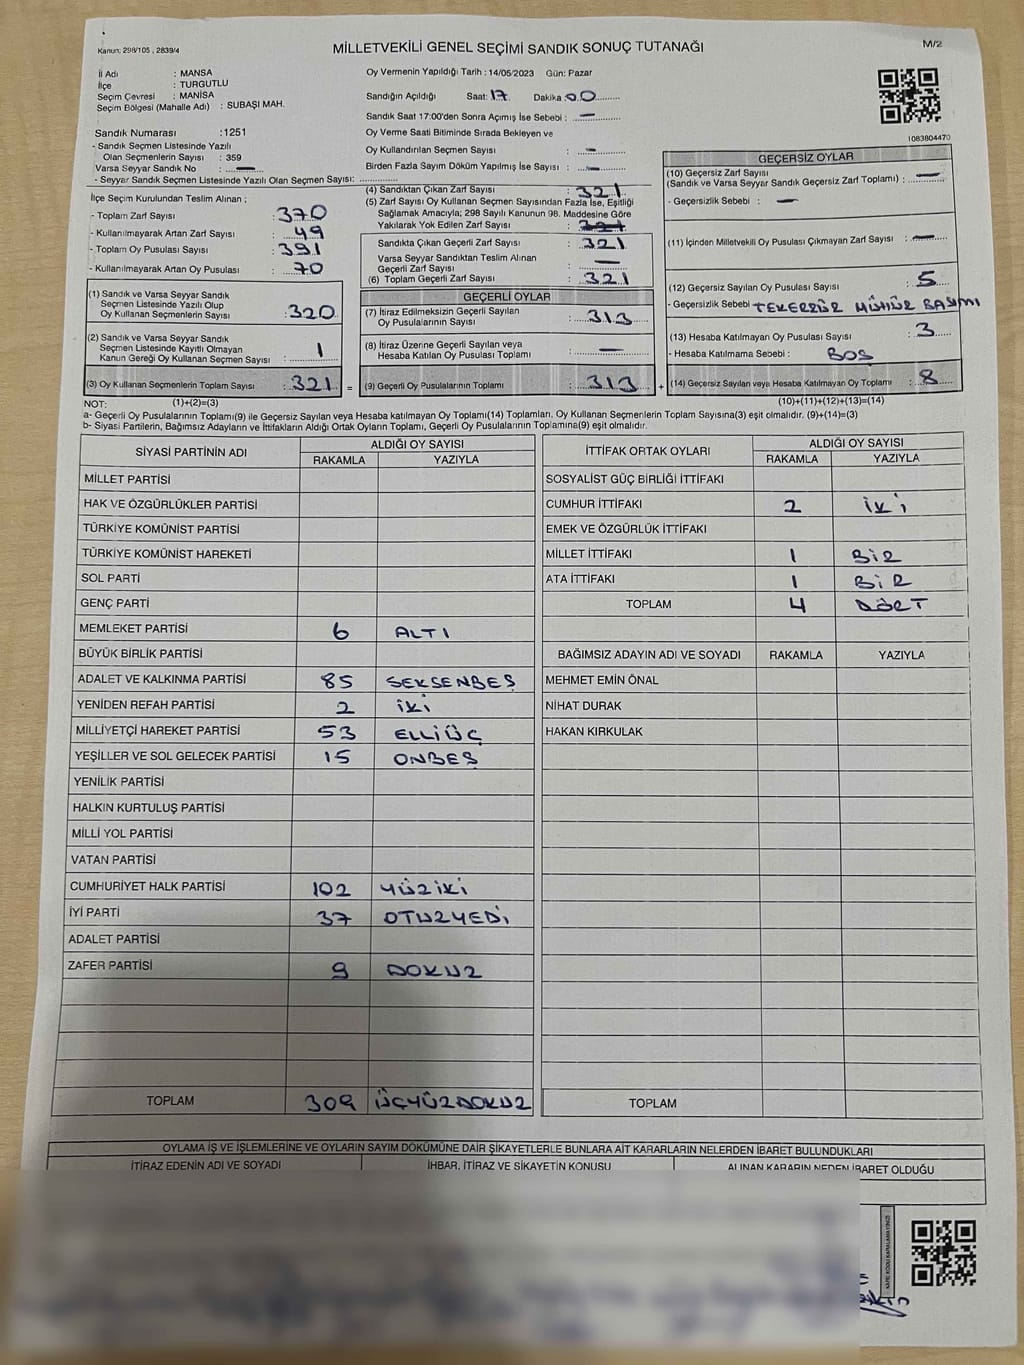 Kanun: 298/105 , 2839/4
MİLLETVEKİLİ GENEL SEÇİMİ SANDIK SONUÇ TUTANAĞI
M/2
İl Adı : MANSA
İlçe : TURGUTLU
Seçim Çevresi : MANİSA
Seçim Bölgesi (Mahalle Adı) : SUBAŞI MAH.
Sandık Numarası :1251
- Sandık Seçmen Listesinde Yazılı
Olan Seçmenlerin Sayısı : 359
Varsa Seyyar Sandık No : —
- Seyyar Sandık Seçmen Listesinde Yazılı Olan Seçmen Sayısı: ..............
Oy Vermenin Yapıldığı Tarih : 14/05/2023 Gün: Pazar
Sandığın Açıldığı Saat: 17 Dakika: 00
Sandık Saat 17:00'den Sonra Açımış İse Sebebi : —
Oy Verme Saati Bitiminde Sırada Bekleyen ve
Oy Kullandırılan Seçmen Sayısı : —
Birden Fazla Sayım Döküm Yapılmış İse Sayısı : —
1083804470
İlçe Seçim Kurulundan Teslim Alınan ;
- Toplam Zarf Sayısı : 370
- Kullanılmayarak Artan Zarf Sayısı : 49
- Toplam Oy Pusulası Sayısı : 391
- Kullanılmayarak Artan Oy Pusulası : 70
(1) Sandık ve Varsa Seyyar Sandık
Seçmen Listesinde Yazılı Olup
Oy Kullanan Seçmenlerin Sayısı : 320
(2) Sandık ve Varsa Seyyar Sandık
Seçmen Listesinde Kayıtlı Olmayan
Kanun Gereği Oy Kullanan Seçmen Sayısı : 1
(3) Oy Kullanan Seçmenlerin Toplam Sayısı : 321 =
(4) Sandıktan Çıkan Zarf Sayısı : 321
(5) Zarf Sayısı Oy Kullanan Seçmen Sayısından Fazla İse, Eşitliği
Sağlamak Amacıyla; 298 Sayılı Kanunun 98. Maddesine Göre
Yakılarak Yok Edilen Zarf Sayısı : 321
Sandıkta Çıkan Geçerli Zarf Sayısı : 321
Varsa Seyyar Sandıktan Teslim Alınan
Geçerli Zarf Sayısı : —
(6) Toplam Geçerli Zarf Sayısı : 321
GEÇERLİ OYLAR
(7) İtiraz Edilmeksizin Geçerli Sayılan
Oy Pusulalarının Sayısı : 313
(8) İtiraz Üzerine Geçerli Sayılan veya
Hesaba Katılan Oy Pusulası Toplamı : —
(9) Geçerli Oy Pusulalarının Toplamı : 313 +
GEÇERSİZ OYLAR
(10) Geçersiz Zarf Sayısı
(Sandık ve Varsa Seyyar Sandık Geçersiz Zarf Toplamı) : —
- Geçersizlik Sebebi : —
(11) İçinden Milletvekili Oy Pusulası Çıkmayan Zarf Sayısı : —
(12) Geçersiz Sayılan Oy Pusulası Sayısı : 5
- Geçersizlik Sebebi TEKERRÜR MÜHÜR BASIMI
(13) Hesaba Katılmayan Oy Pusulası Sayısı : 3
- Hesaba Katılmama Sebebi : BOŞ
(14) Geçersiz Sayılan veya Hesaba Katılmayan Oy Toplamı : 8
NOT: (1)+(2)=(3)
(10)+(11)+(12)+(13)=(14)
a- Geçerli Oy Pusulalarının Toplamı(9) ile Geçersiz Sayılan veya Hesaba katılmayan Oy Toplamı(14) Toplamları, Oy Kullanan Seçmenlerin Toplam Sayısına(3) eşit olmalıdır. (9)+(14)=(3)
b- Siyasi Partilerin, Bağımsız Adayların ve İttifakların Aldığı Ortak Oyların Toplamı, Geçerli Oy Pusulalarının Toplamına(9) eşit olmalıdır.
SİYASİ PARTİNİN ADI ALDIĞI OY SAYISI
RAKAMLA YAZIYLA
MİLLET PARTİSİ
HAK VE ÖZGÜRLÜKLER PARTİSİ
TÜRKİYE KOMÜNİST PARTİSİ
TÜRKİYE KOMÜNİST HAREKETİ
SOL PARTİ
GENÇ PARTİ
MEMLEKET PARTİSİ 6 ALTI
BÜYÜK BİRLİK PARTİSİ
ADALET VE KALKINMA PARTİSİ 85 SEKSENBEŞ
YENİDEN REFAH PARTİSİ 2 İKİ
MİLLİYETÇİ HAREKET PARTİSİ 53 ELLİÜÇ
YEŞİLLER VE SOL GELECEK PARTİSİ 15 ONBEŞ
YENİLİK PARTİSİ
HALKIN KURTULUŞ PARTİSİ
MİLLİ YOL PARTİSİ
VATAN PARTİSİ
CUMHURİYET HALK PARTİSİ 102 YÜZİKİ
İYİ PARTİ 37 OTUZYEDİ
ADALET PARTİSİ
ZAFER PARTİSİ 9 DOKUZ
TOPLAM 309 ÜÇYÜZDOKUZ
İTTİFAK ORTAK OYLARI ALDIĞI OY SAYISI
RAKAMLA YAZIYLA
SOSYALİST GÜÇ BİRLİĞİ İTTİFAKI
CUMHUR İTTİFAKI 2 İKİ
EMEK VE ÖZGÜRLÜK İTTİFAKI
MİLLET İTTİFAKI 1 BİR
ATA İTTİFAKI 1 BİR
TOPLAM 4 DÖRT
BAĞIMSIZ ADAYIN ADI VE SOYADI RAKAMLA YAZIYLA
MEHMET EMİN ÖNAL
NİHAT DURAK
HAKAN KIRKULAK
TOPLAM
OYLAMA İŞ VE İŞLEMLERİNE VE OYLARIN SAYIM DÖKÜMÜNE DAİR ŞİKAYETLERLE BUNLARA AİT KARARLARIN NELERDEN İBARET BULUNDUKLARI
İTİRAZ EDENİN ADI VE SOYADI İHBAR, İTİRAZ VE SİKAYETİN KONUSU ALINAN KARARIN NEDEN İBARET OLDUĞU
KARE KODU KARALAMAYINIZ!